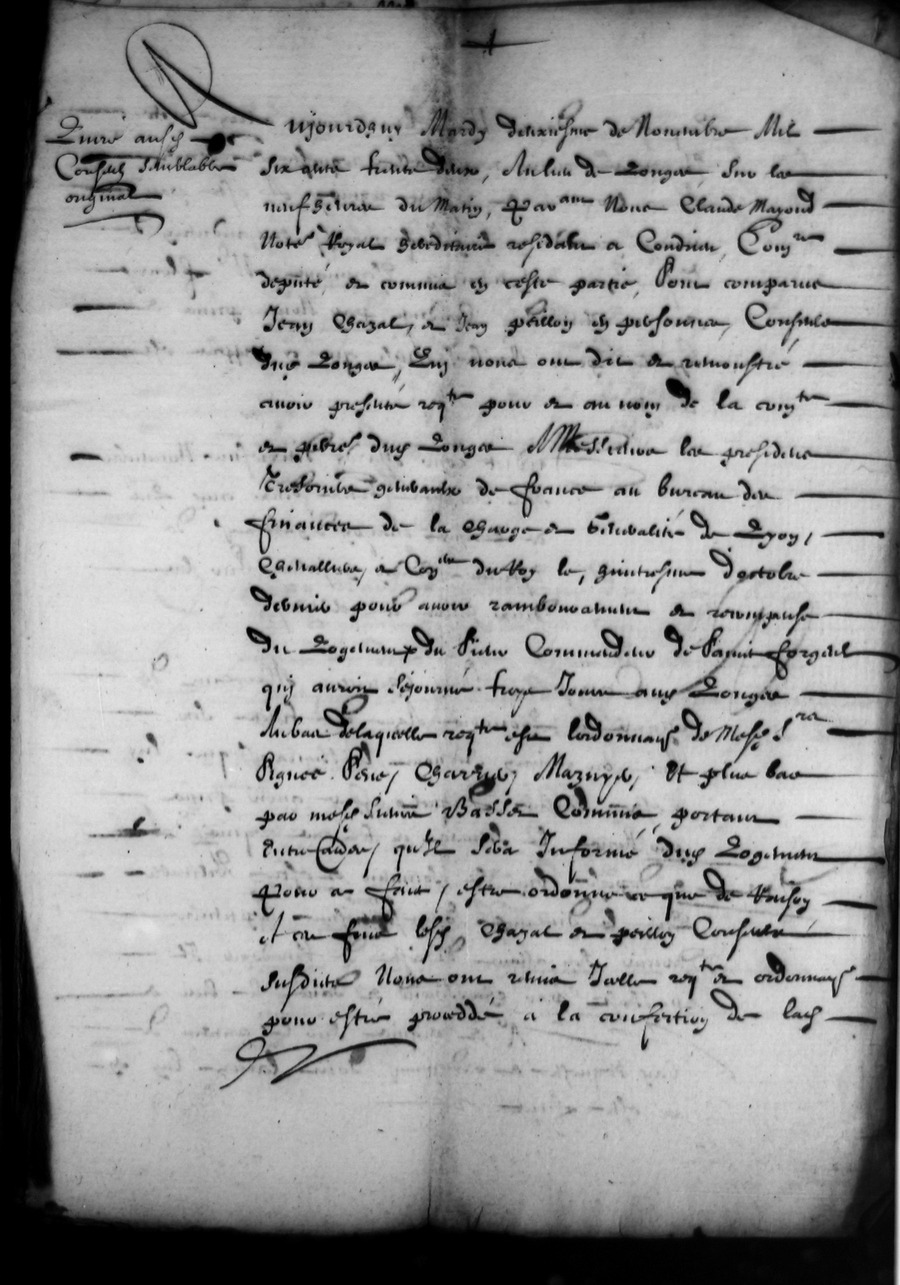 Livré ausd
Consulz semblable
original
Aujourdhuy Mardy deuxiesme de Novembre Mil
six cents trente deux, Au lieu de Longes, sur les
neuf heures du Matin, Par avant Nous Claude Mazond
Notere Royal hereditaire residant a Condrieu, Comre
deputé, et commis en ceste partie, Sont comparus
Jean Chazal, et Jean peillon en personnes, Consulz
dud Longes, Qui nous ont dit et remonstré
avoir presenté reqte pour et au nom de la comte
et perres dud Longes A Messieurs les presidens
Tresoriers generaulx de france au bureau des
finances de la charge et generalité de Lyon,
Chevalliers, et Coners du Roy le, huictiesme d'octobre
dernier pour avoir ramboursement et recompense
du Logement du sieur Commandeur de Sainct forgeul
qui auroit sejourné troys Jours aud Longes
Au bas de laquelle reqte est lordonnance de Mesd Srs
Signés. Seve, Charrier, Mazuyer, Et plus bas
par mesd sieurs Basset Commis, portant
entre aultres, qu'il sera Informé dud Logement
Pour ce faict, estre ordonné ce que de Raison
Et ces fins lesd Chazal et peillon Consulz
susdits Nous ont remis Icelle reqte et ordonnance
pour estre proceddé a la confection de lad